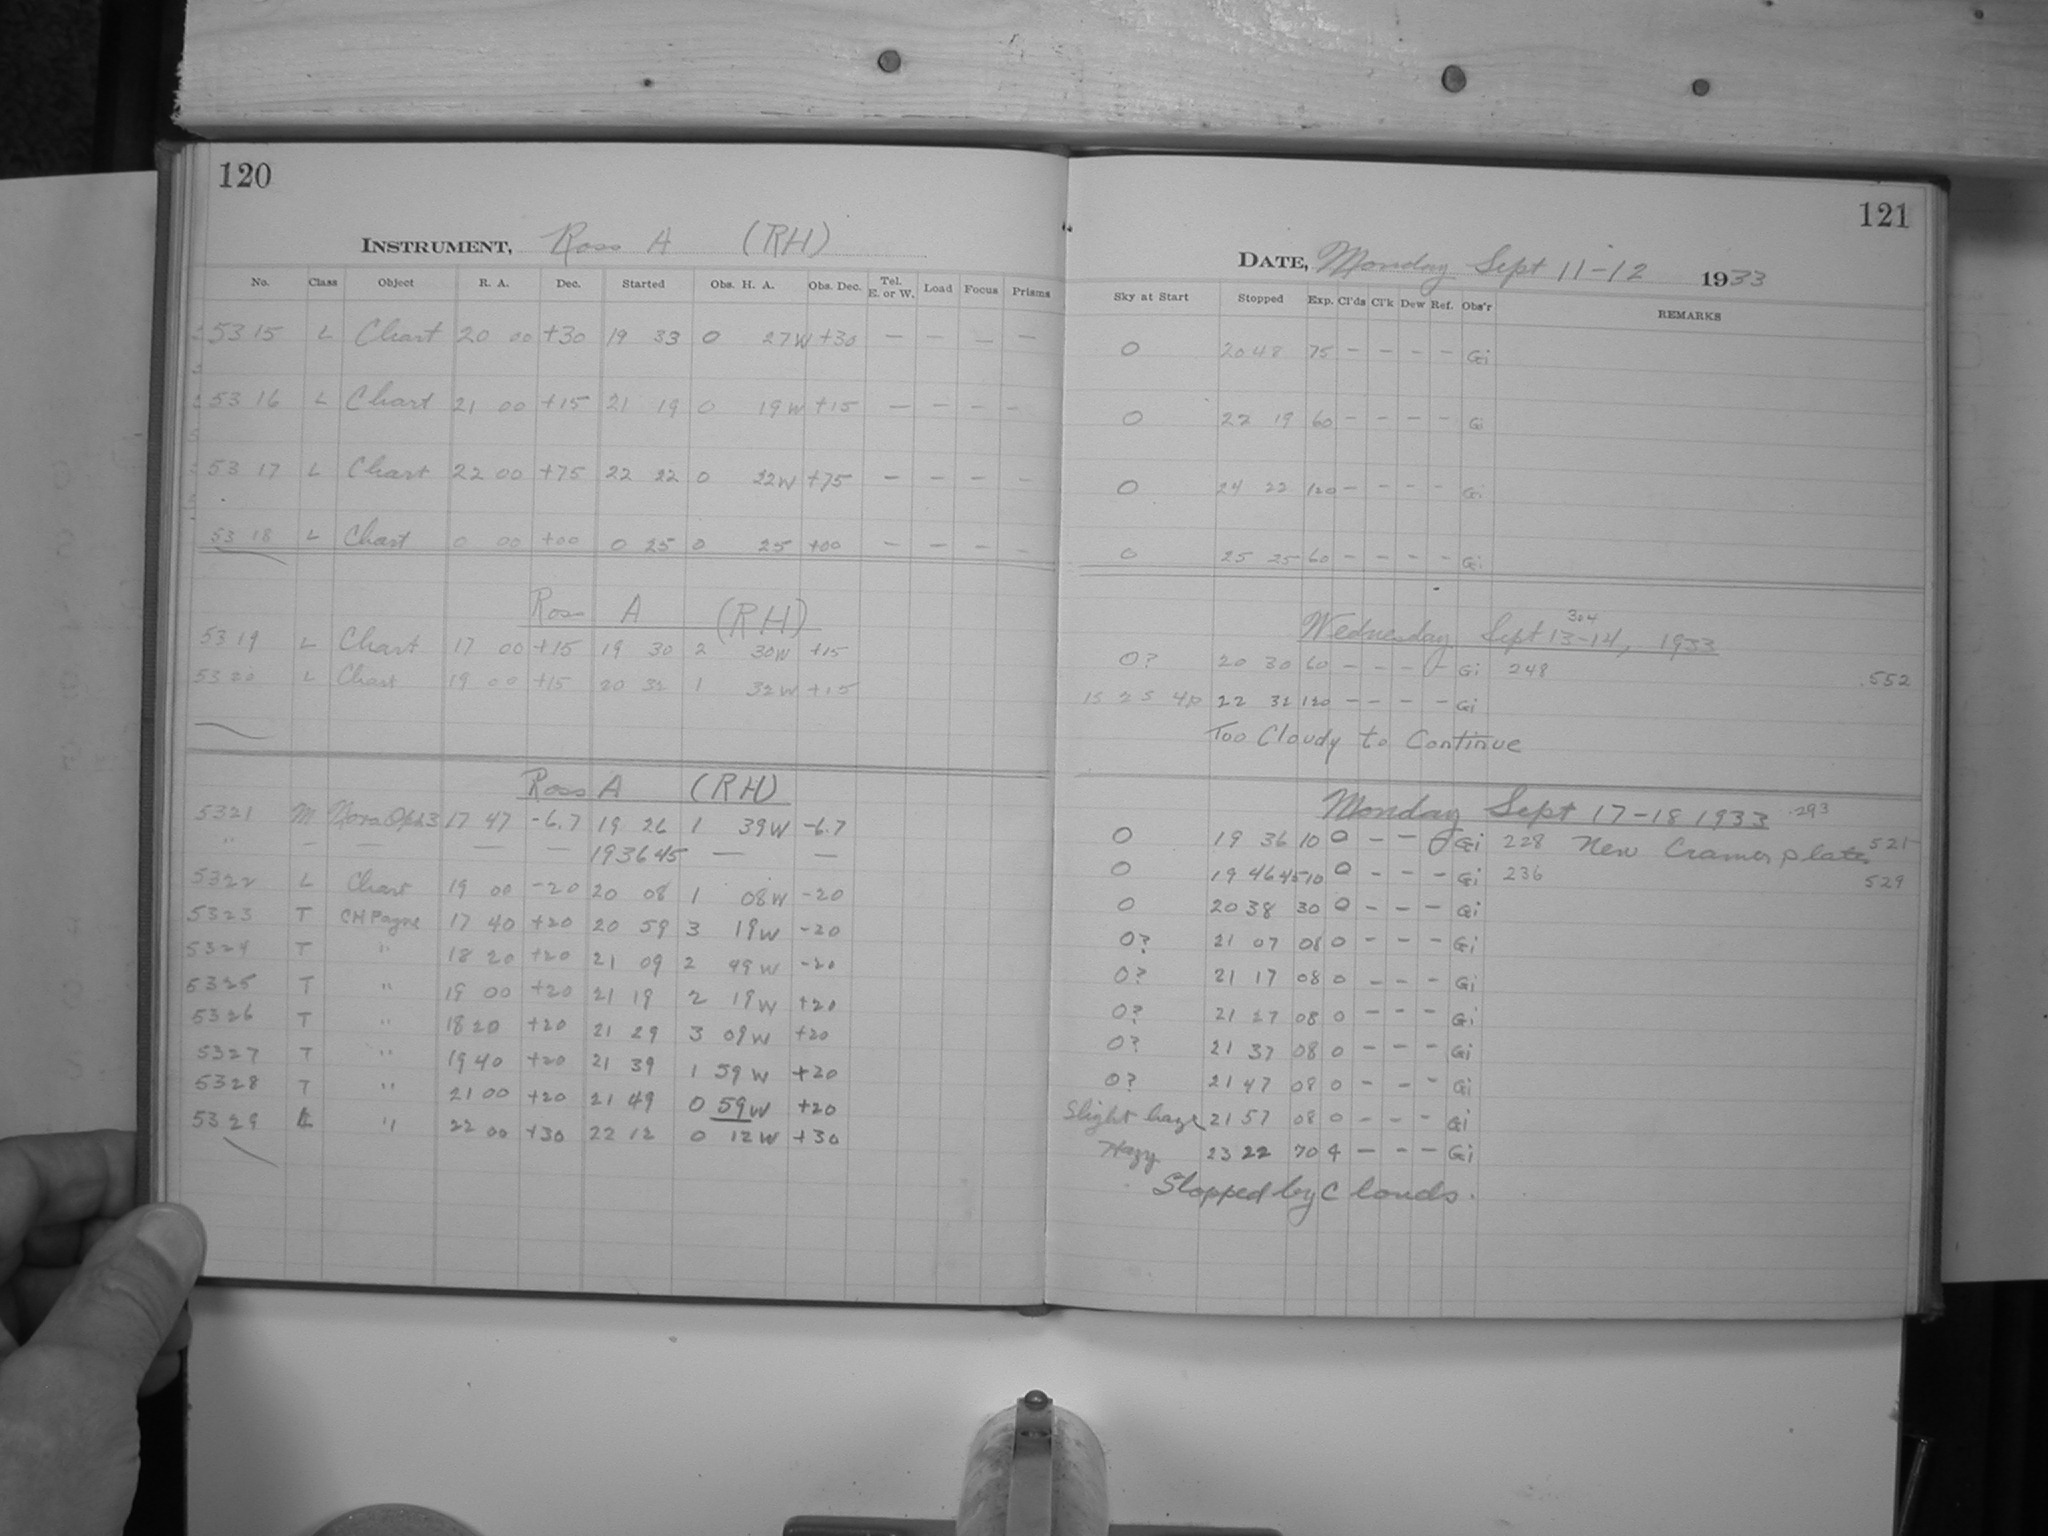 120
INSTRUMENT, Ross A (RH)
No. Class Object R. A. Dec. Started Obs. H. A. Obs. Dec. Tel. E. or W. Load Focus Prisms
5315 L Chart 20 00 +30 19 33 0 27W +30 — — — —
5316 L Chart 21 00 +15 21 19 0 19W +15 — — — —
5317 L Chart 22 00 +75 22 22 0 22W +75 — — — —
5318 L Chart 0 00 +00 0 25 0 25 +00 — — — —
Ross A (RH)
5319 L Chart 17 00 +15 19 30 2 30W +15
5320 L Chart 19 00 +15 20 32 1 32W +15
Ross A (RH)
5321 M Nova Oph3 17 47 -6.7 19 26 1 39W -6.7
" — — — — 193645 — —
5322 L Chart 19 00 -20 20 08 1 08W -20
5323 T CH Payne 17 40 +20 20 59 3 19W -20
5324 T " 18 20 +20 21 09 2 49W -20
5325 T " 19 00 +20 21 19 2 19W +20
5326 T " 18 20 +20 21 29 3 09W +20
5327 T " 19 40 +20 21 39 1 59W +20
5328 T " 21 00 +20 21 49 0 59W +20
5329 L " 22 00 +30 22 12 0 12W +30
121
DATE, Monday Sept 11-12 1933
Sky at Start Stopped Exp. Cl'ds Cl'k Dew Ref. Obs'r REMARKS
0 20 48 75 — — — — Gi
0 22 19 60 — — — — Gi
0 24 22 120 — — — — Gi
0 25 25 60 — — — — Gi
304
Wednesday Sept 13-14, 1933
0? 20 30 60 — — — — Gi 248 .552
1S 2S 4p 22 32 120 — — — — Gi
Too Cloudy to Continue
Monday Sept 17-18 1933 .293
0 19 36 10 0 — — 0 Gi 228 New Cramer plates 521
0 19 4645 10 0 — — — Gi 236 529
0 20 38 30 0 — — — Gi
0? 21 07 08 0 — — — Gi
0? 21 17 08 0 — — — Gi
0? 21 27 08 0 — — — Gi
0? 21 37 08 0 — — — Gi
0? 21 47 08 0 — — — Gi
Slight haze 21 57 08 0 — — — Gi
Hazy 23 22 70 4 — — — Gi
Stopped by Clouds.